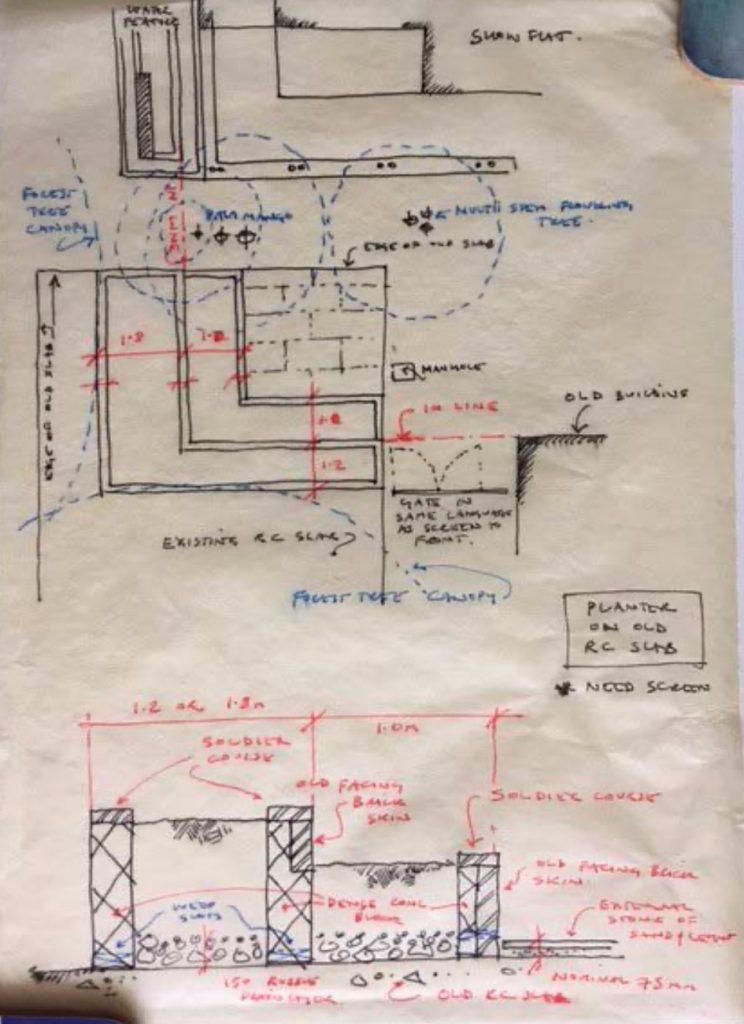 WATER
FEATURE
SHOW FLAT.
FOREST
TREE
CANOPY
MANGO
MULTI STEM FLOWERING
TREE.
EDGE OF OLD SLAB
EDGE OF OLD SLAB
1.8
MANHOLE
IN LINE
OLD BUILDING
1.2
GATE IN
SAME LANGUAGE
AS SCREEN TO
FRONT.
EXISTING RC SLAB
FOREST TREE CANOPY
PLANTER
ON OLD
RC SLAB
NEED SCREEN
1.2 OR 1.8M
1.0M
SOLDIER
COURSE
OLD FACING
BRICK
SKIN
SOLDIER COURSE
OLD FACING BRICK
SKIN.
WEEP
SLOTS
DENSE CONC
BLOCK
EXTERNAL
STONE OF
SAND/CEMENT
150 RUBBLE
OLD RC SLAB
NOMINAL 75MM